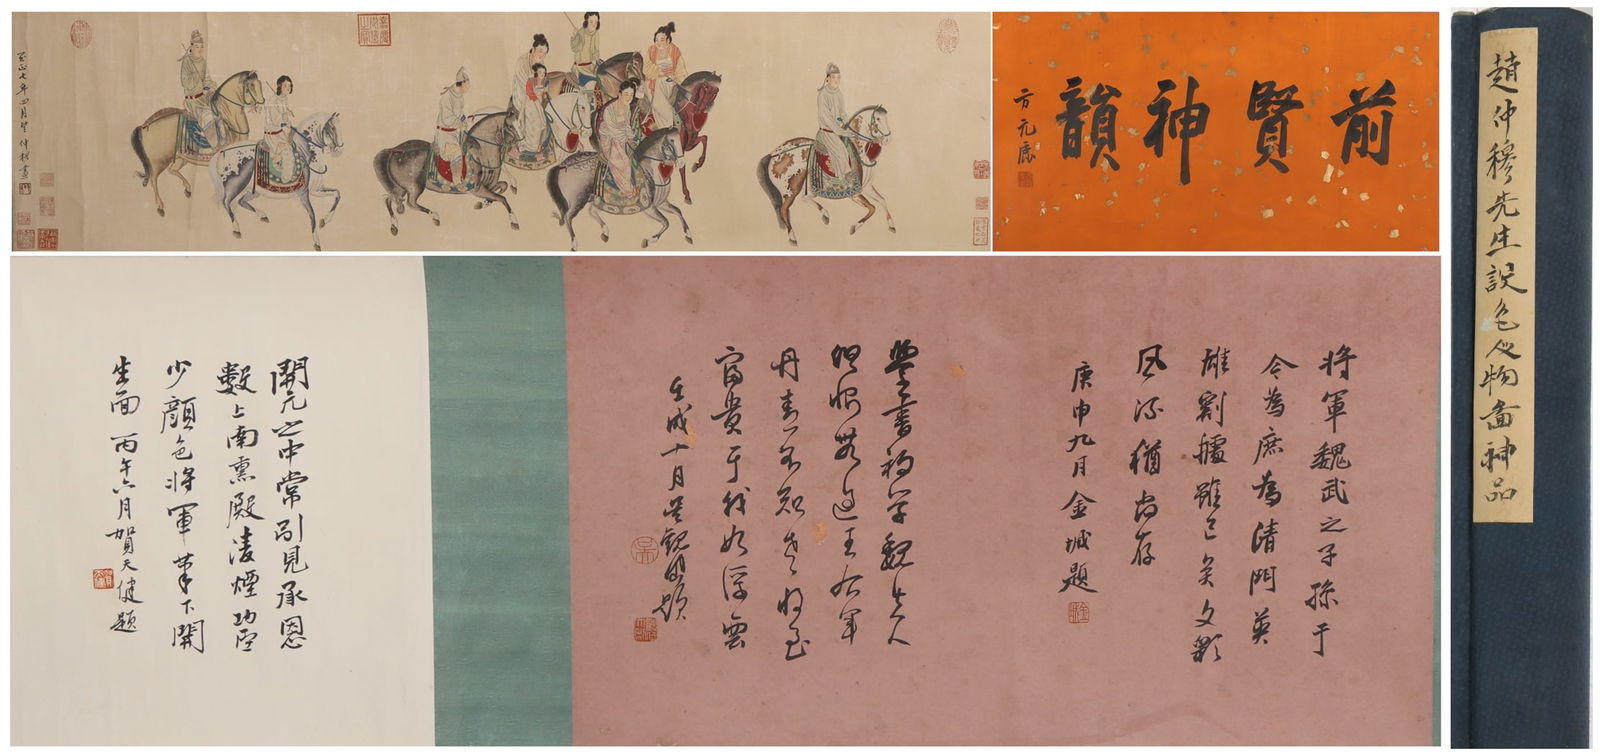 至正七年四月望仲穆畫
前賢神韻
方元鹿
趙仲穆先生設色人物圖神品
將軍魏武之子孫于
今為庶為清門英
雄割據雖已矣文彩
風流猶尚存
庚申九月金城題
學書初學衛夫人
但恨無過王右軍
丹青不知老將至
富貴于我如浮雲
壬戌十月吳觀岱題
開元之中常引見承恩
數上南熏殿凌煙功臣
少顏色將軍筆下開
生面丙午六月賀天健題